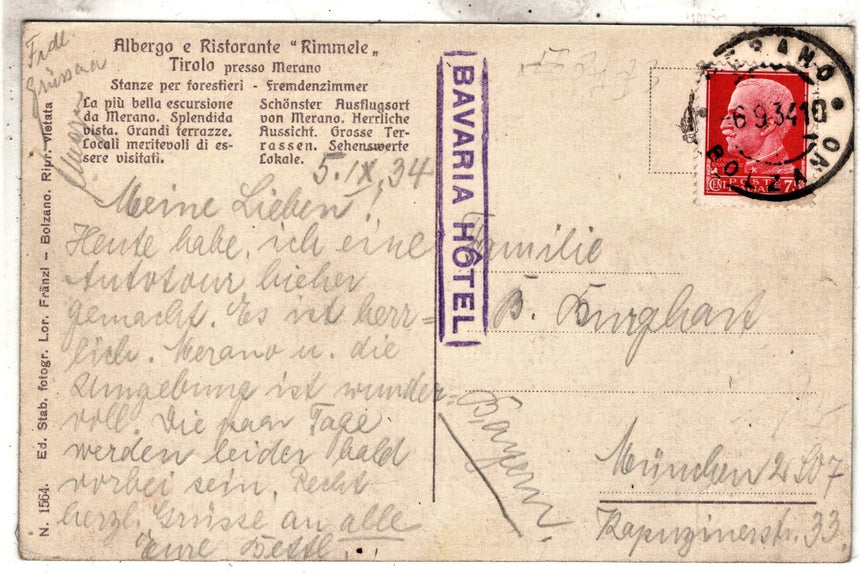 Albergo e Ristorante "Rimmele"
Tirolo presso Merano
Stanze per forestieri - Fremdenzimmer
La più bella escursione
da Merano. Splendida
vista. Grandi terrazze.
Locali meritevoli di es-
sere visitati.
Schönster Ausflugsort
von Merano. Herrliche
Aussicht. Grosse Ter-
rassen. Sehenswerte
Lokale.
5.IX.34
Meine Lieben!
Heute habe ich eine
Autotour hieher
gemacht. Es ist herr=
lich. Merano u. die
Umgebung ist wunder=
voll. Die paar Tage
werden leider bald
vorbei sein. Recht
herzl. Grüsse an alle
Eure
Frdl.
Grüsse
N. 1564. Ed. Stab. fotogr. Lor. Fränzl – Bolzano. Ripr. vietata
BAVARIA HÔTEL
MERANO
-6.9.34 10
BOLZANO
POSTE
ITALIANE
Familie
B. Burghart
München 2 SO7
Kapuzinerstr. 33.
Bayern.